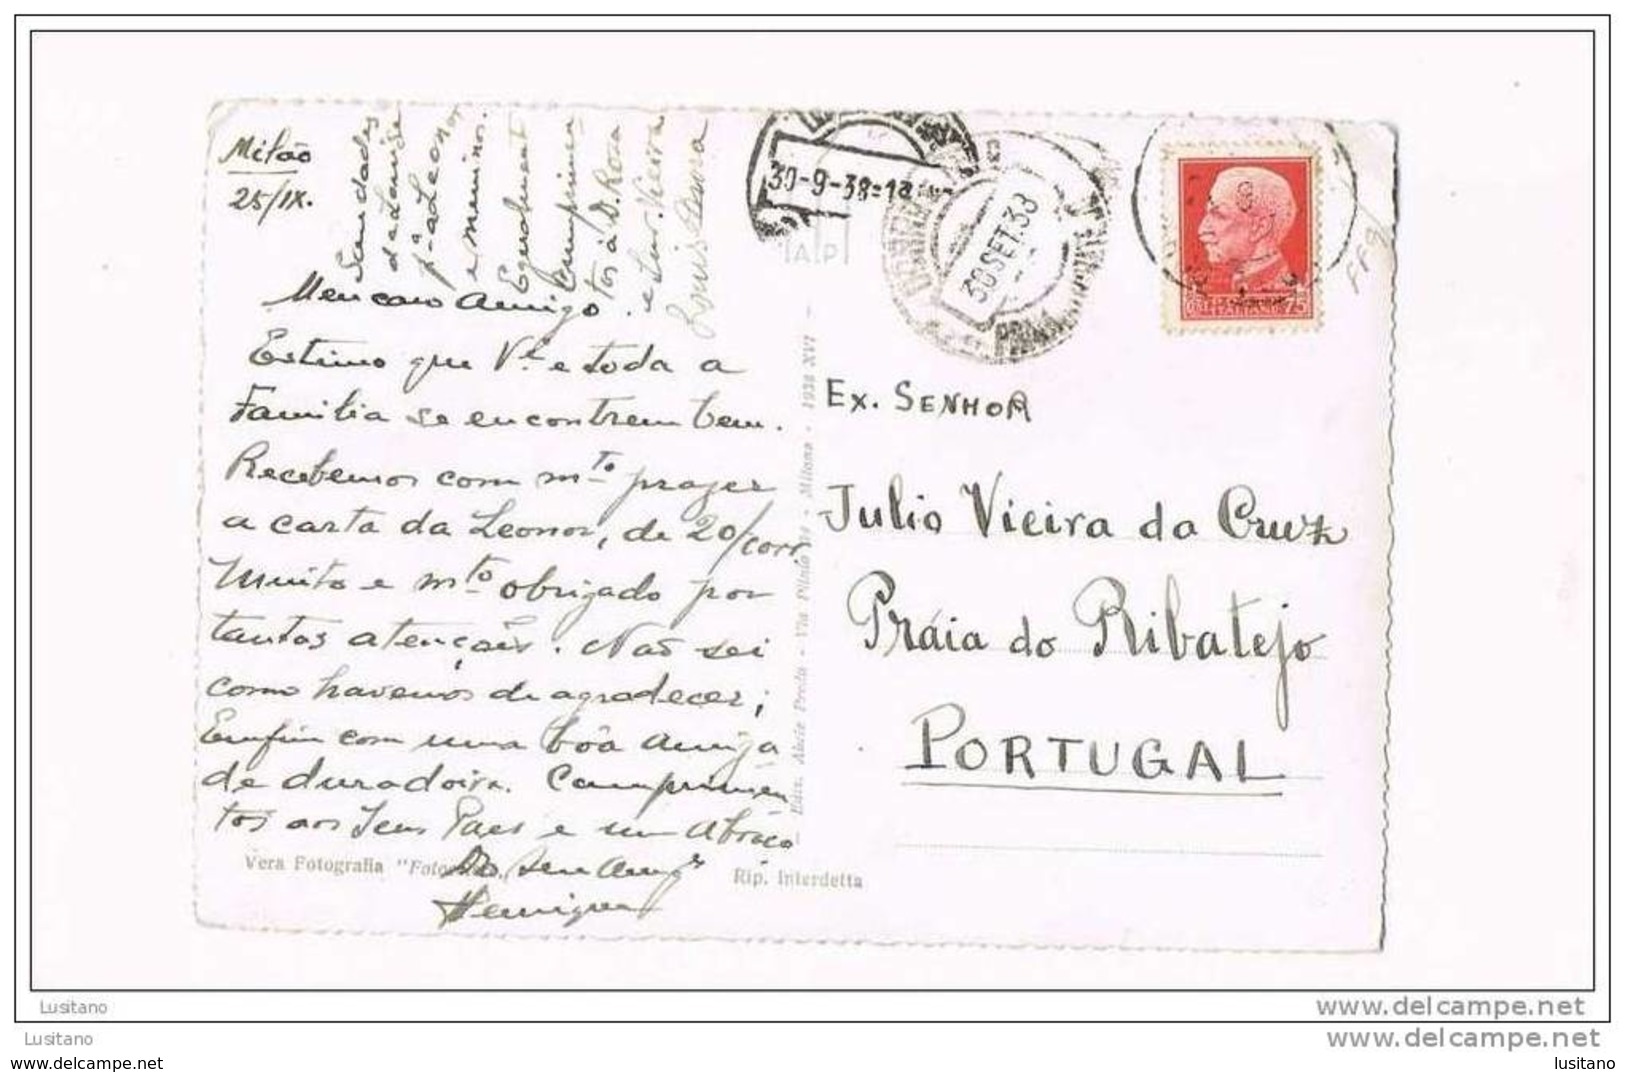 Milão
25/IX.
Saudades
da Luniza
pª a Leonor
e meninos.
Egualment
Cumprimen
tos à D. Rosa
e Snr. Vieira
Meu caro Amigo.
Estimo que V.ê e toda a
Familia se encontrem bem.
Recebemos com mto prazer
a carta da Leonor, de 20/corr.
Muito e mto obrigado por
tantas atenções. Não sei
como havemos de agradecer;
Emfim com uma bôa amiza
de duradoira. Cumprimen
tos aos seus Paes e um Abraço
Do seu Amigº
Henrique
Vera Fotografia "Foto
Rip. Interdetta
Milano - 1938 XVI -
30-9-38-18
30 SET. 38
AP
75
EX. SENHOR
Julio Vieira da Cruz
Praia do Ribatejo
PORTUGAL
Lusitano
www.delcampe.net
Lusitano
www.delcampe.net
www.delcampe.net
lusitano